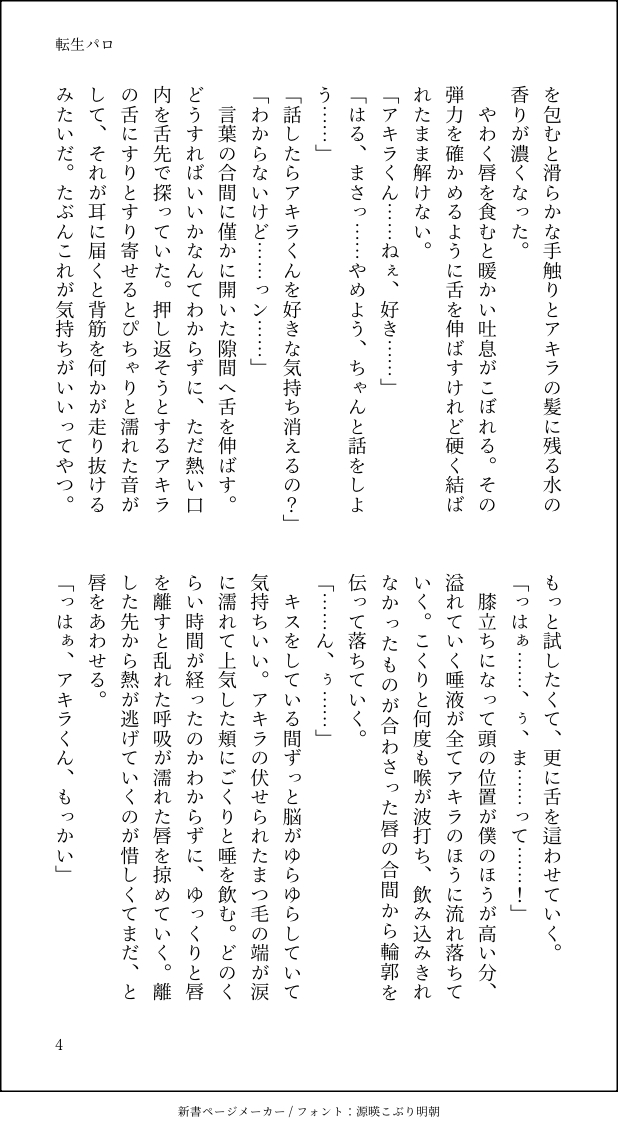 転生パロ
を包むと滑らかな手触りとアキラの髪に残る水の
香りが濃くなった。
　やわく唇を食むと暖かい吐息がこぼれる。その
弾力を確かめるように舌を伸ばすけれど硬く結ば
れたまま解けない。
「アキラくん……ねぇ、好き……」
「はる、まさっ……やめよう、ちゃんと話をしよ
う……」
「話したらアキラくんを好きな気持ち消えるの？」
「わからないけど……っン……」
　言葉の合間に僅かに開いた隙間へ舌を伸ばす。
どうすればいいかなんてわからずに、ただ熱い口
内を舌先で探っていた。押し返そうとするアキラ
の舌にすりとすり寄せるとぴちゃりと濡れた音が
して、それが耳に届くと背筋を何かが走り抜ける
みたいだ。たぶんこれが気持ちがいいってやつ。
もっと試したくて、更に舌を這わせていく。
「っはぁ……、ぅ、ま……って……！」
　膝立ちになって頭の位置が僕のほうが高い分、
溢れていく唾液が全てアキラのほうに流れ落ちて
いく。こくりと何度も喉が波打ち、飲み込みきれ
なかったものが合わさった唇の合間から輪郭を
伝って落ちていく。
「……ん、ぅ……」
　キスをしている間ずっと脳がゆらゆらしていて
気持ちいい。アキラの伏せられたまつ毛の端が涙
に濡れて上気した頬にごくりと唾を飲む。どのく
らい時間が経ったのかわからずに、ゆっくりと唇
を離すと乱れた呼吸が濡れた唇を掠めていく。離
した先から熱が逃げていくのが惜しくてまだ、と
唇をあわせる。
「っはぁ、アキラくん、もっかい」
4
新書ページメーカー / フォント：源暎こぶり明朝